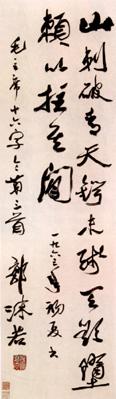 山刺破青天鍔未殘天欲墮
賴以拄其間
一九六三年初夏书
毛主席十六字令第三首
郭沫若